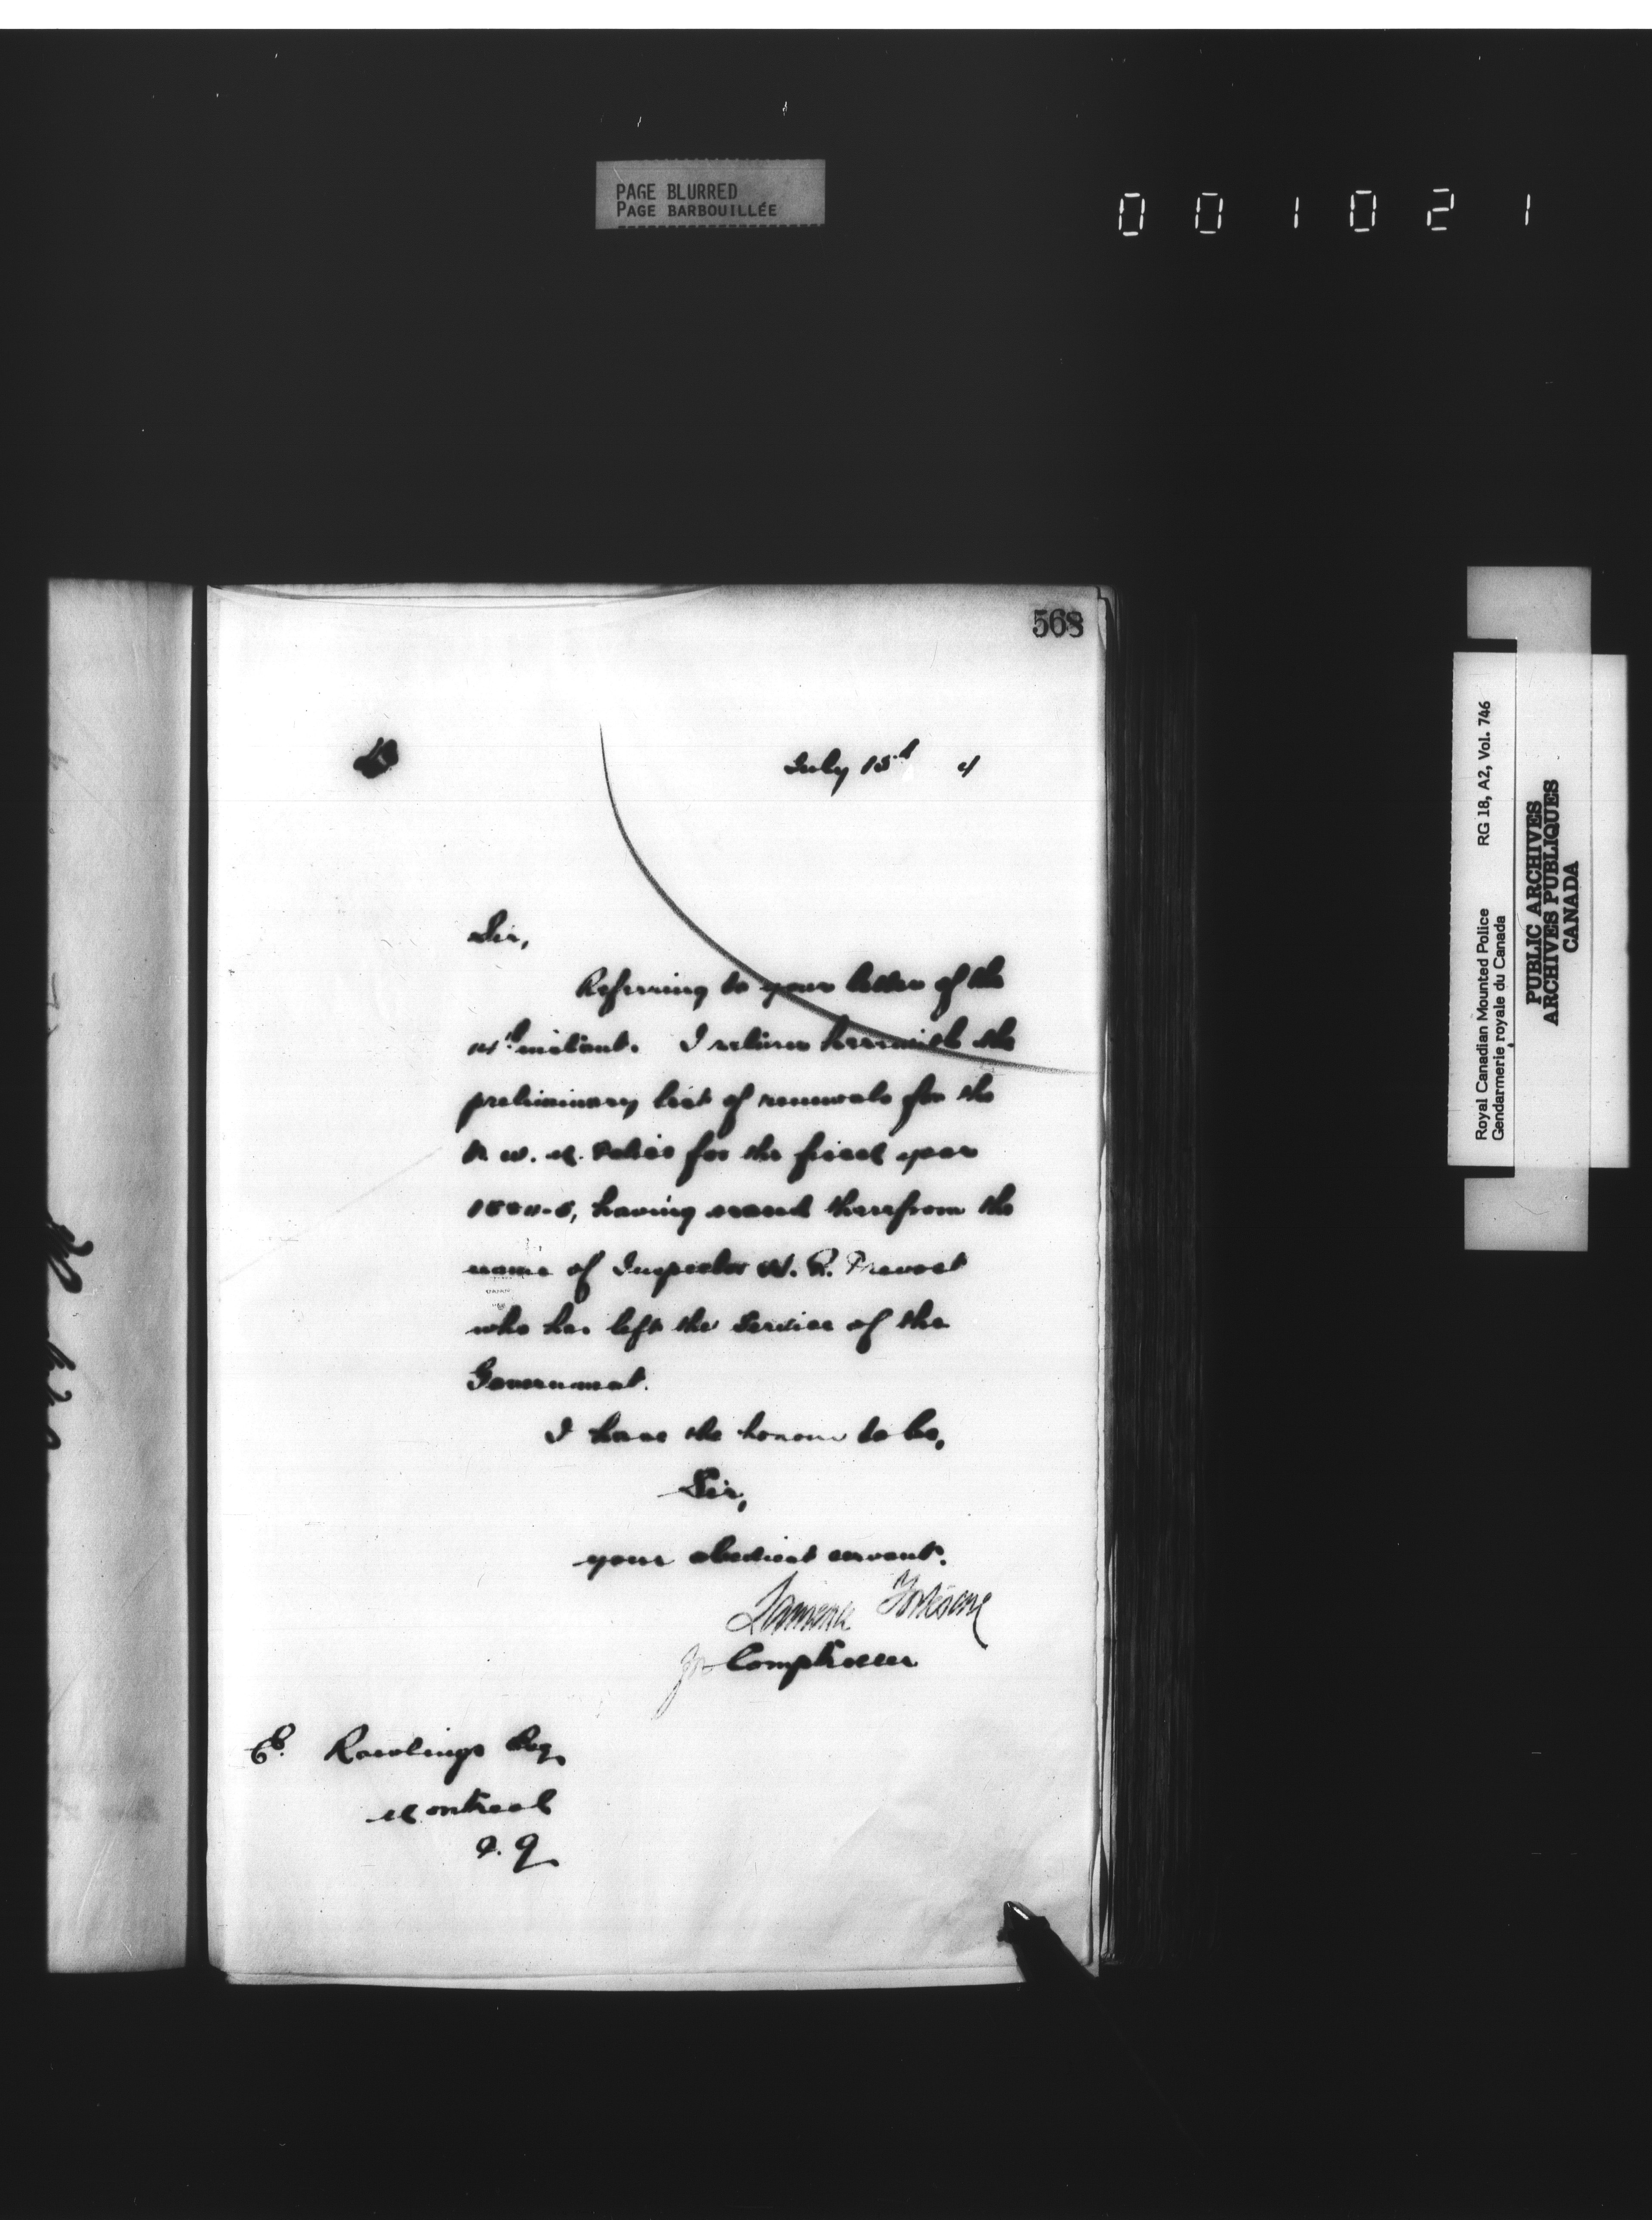 PAGE BLURRED
PAGE BARBOUILLÉE
001021
568
July 15th 4
Sir,
Referring to your letter of the
14th instant. I return herewith the
preliminary list of renewals for the
N. W. M. Police for the fiscal year
1884-5, having erased therefrom the
name of Inspector W. R. Prevost
who has left the service of the
Government.
I have the honour to be,
Sir,
your obedient servant.
Laurence Fortescue
for Comptroller
E. Rawlings Esq.
Montreal
P. Q.
Royal Canadian Mounted Police RG 18, A2, Vol. 746
Gendarmerie royale du Canada
PUBLIC ARCHIVES
ARCHIVES PUBLIQUES
CANADA